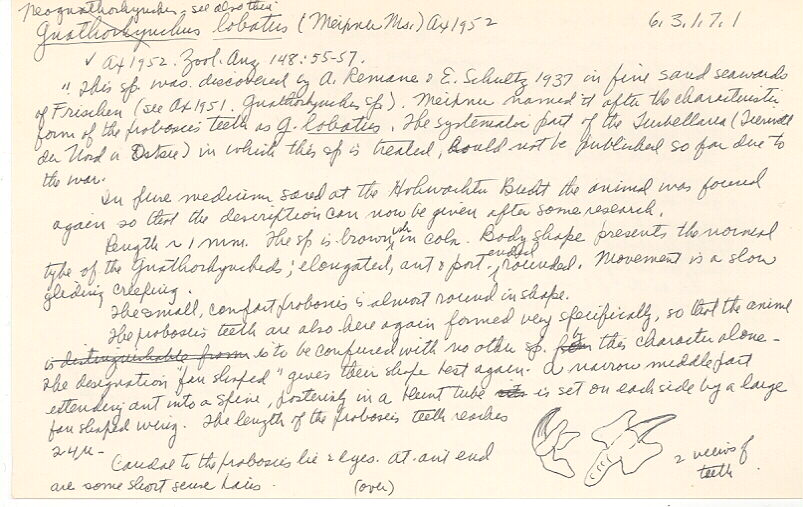 Neognathorhynchus, see also this
Gnathorhynchus lobatus (Meixner Ms.) Ax 1952 6.3.1.7.1
✓ Ax 1952. Zool. Anz 148:55-57.
"This sp. was discovered by A. Remane & E. Schultz 1937 in fine sand seawards
of Frischen (see Ax 1951. Gnathorhynchus sp.). Meixner named it after the characteristic
form of the proboscis teeth as G. lobatus. The systematic part of the Turbellaria (Tierwelt
der Nord u Ostsee) in which this sp is treated, could not be published so far due to
the war.
In fine medium sand at the Hohwachter Bucht the animal was found
again so that the description can now be given after some research.
Length ~ 1 mm. The sp is brownish in color. Body shape presents the normal
type of the Gnathorhynchids; elongated, ant & post ended rounded. Movement is a slow
gliding creeping.
The small, compact proboscis is almost round in shape.
The proboscis teeth are also here again formed very specifically, so that the animal
is distinguishable from is to be confused with no other sp. for this character alone -
The designation "fan shaped" gives their shape best again. A narrow middle part
extending ant into a spine, posteriorly in a blunt tube is set on each side by a large
fan shaped wing. The length of the proboscis teeth reaches
24µ -
Caudal to the proboscis lie 2 eyes. At ant end
are some short sense hairs.
(over)
2 views of
teeth